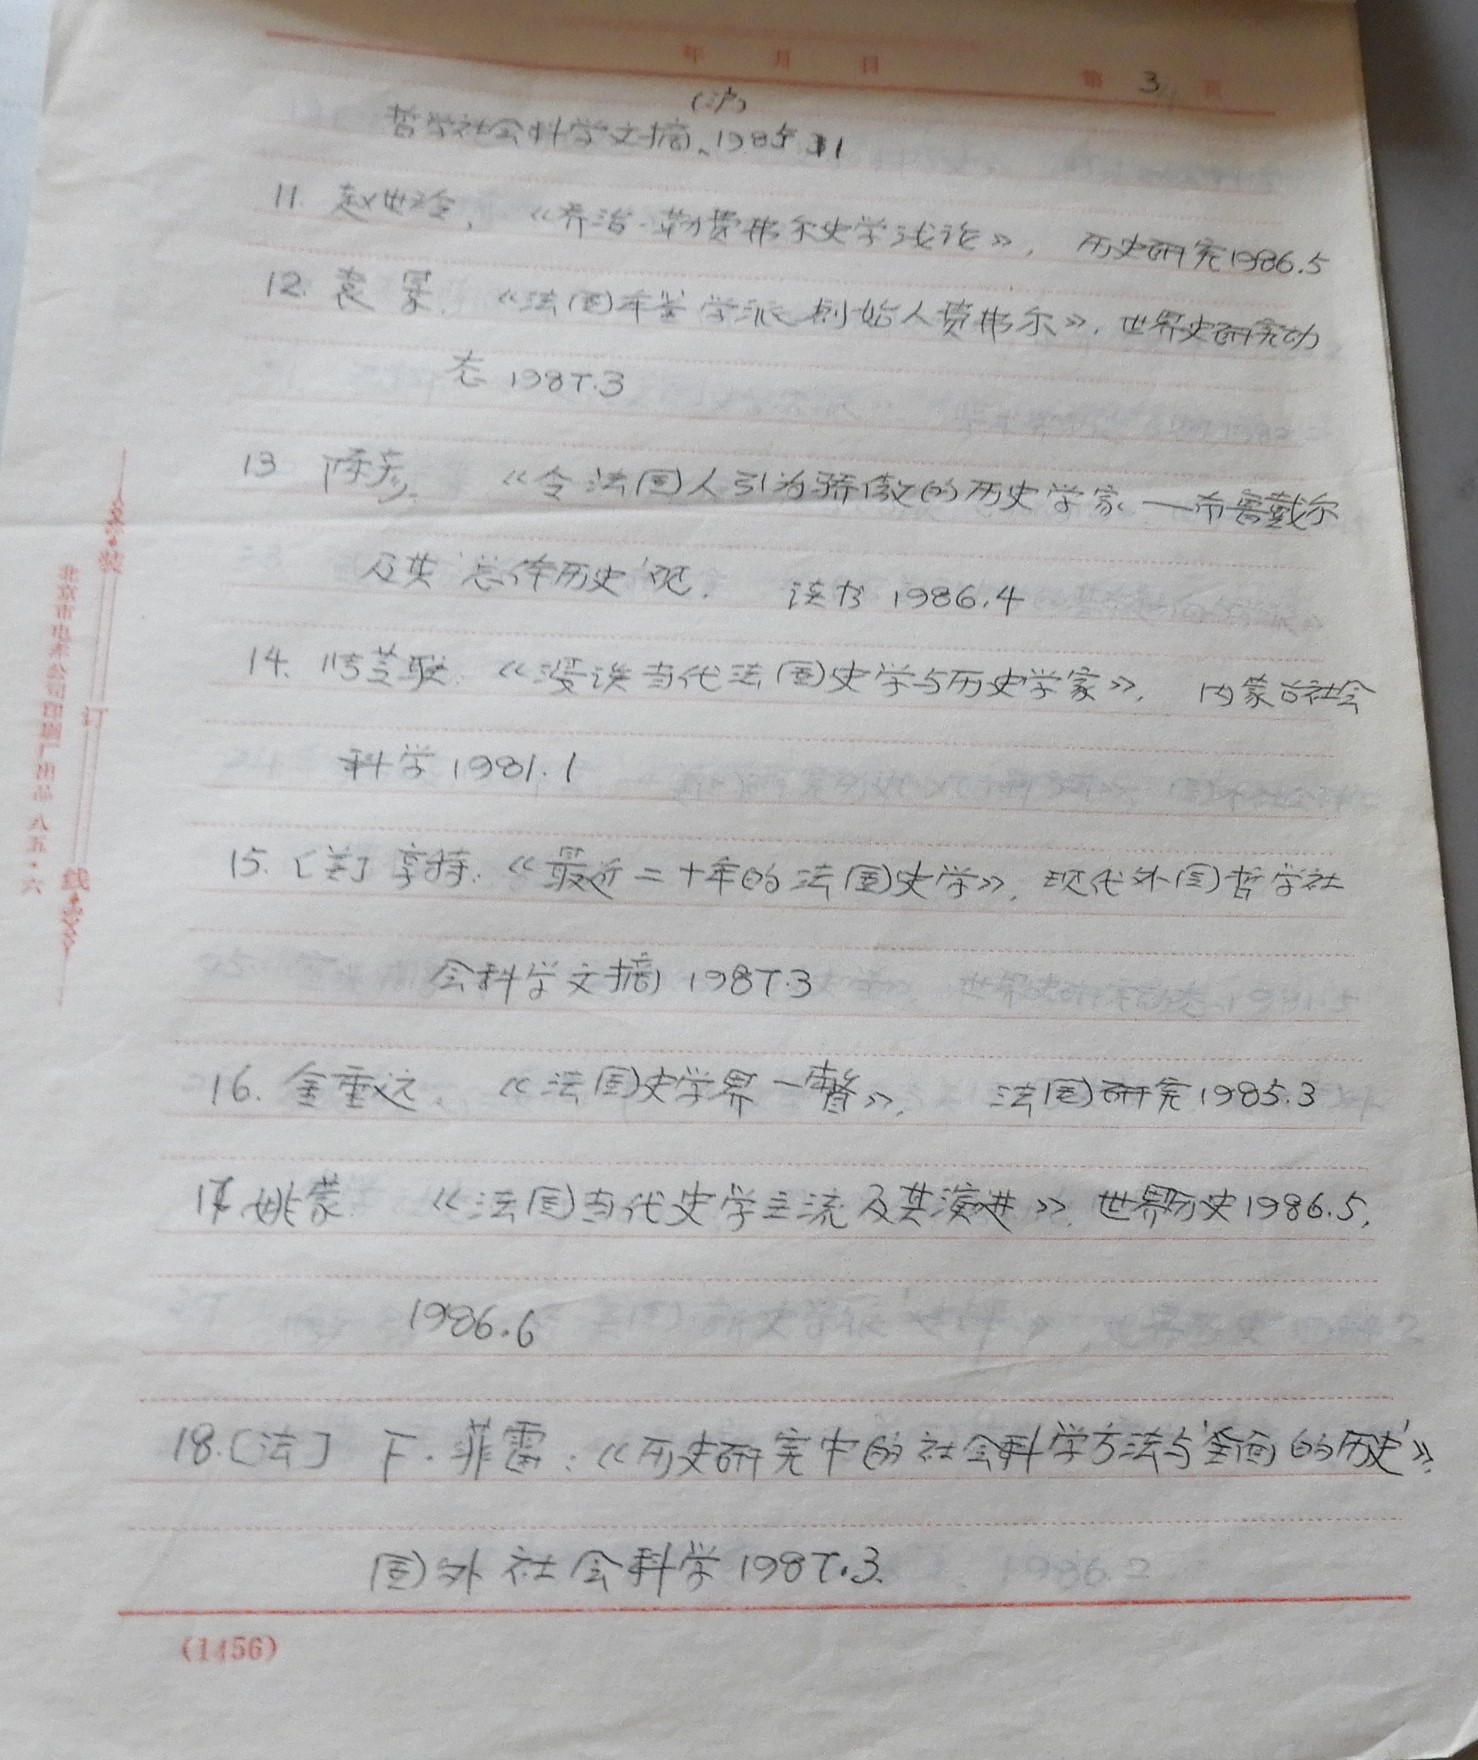 年 月 日 第 3 页
(沪)
哲学社会科学文摘、1985.11
11. 赵世玲, 《乔治·勒费弗尔史学浅论》, 历史研究1986.5
12. 袁杲, 《法国年鉴学派创始人费弗尔》, 世界史研究动
态 1987.3
13 陈彦, 《令法国人引为骄傲的历史学家—布鲁戴尔
及其'总体历史'观. 读书 1986.4
14. 端芝联. 《漫谈当代法国史学与历史学家》, 内蒙古社会
科学 1981.1
15. [美] 亨特: 《最近二十年的法国史学》, 现代外国哲学社
会科学文摘 1987.3
16. 金重远, 《法国史学界一瞥》, 法国研究1985.3
17 姚蒙 《法国当代史学主流及其演进》, 世界历史1986.5,
1986.6
18. [法] F·菲雷: 《历史研究中的社会科学方法与'全面的历史'》,
国外社会科学 1987.3.
(1456)
装
订
线
北京市电车公司印刷厂出品 八五·六